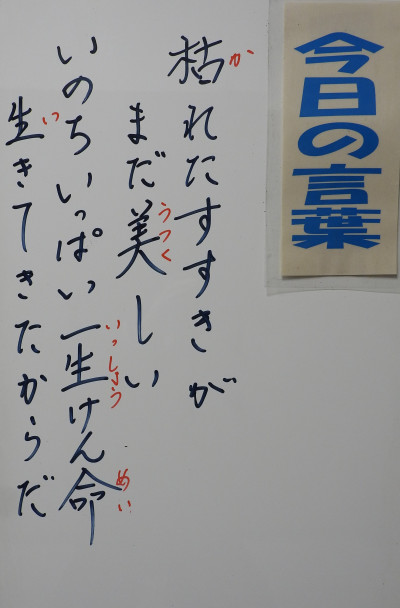 今日の言葉
枯れたすすきが
まだ美しい
いのちいっぱい一生けん命
生きてきたからだ
か
うつく
いっしょう
めい
い